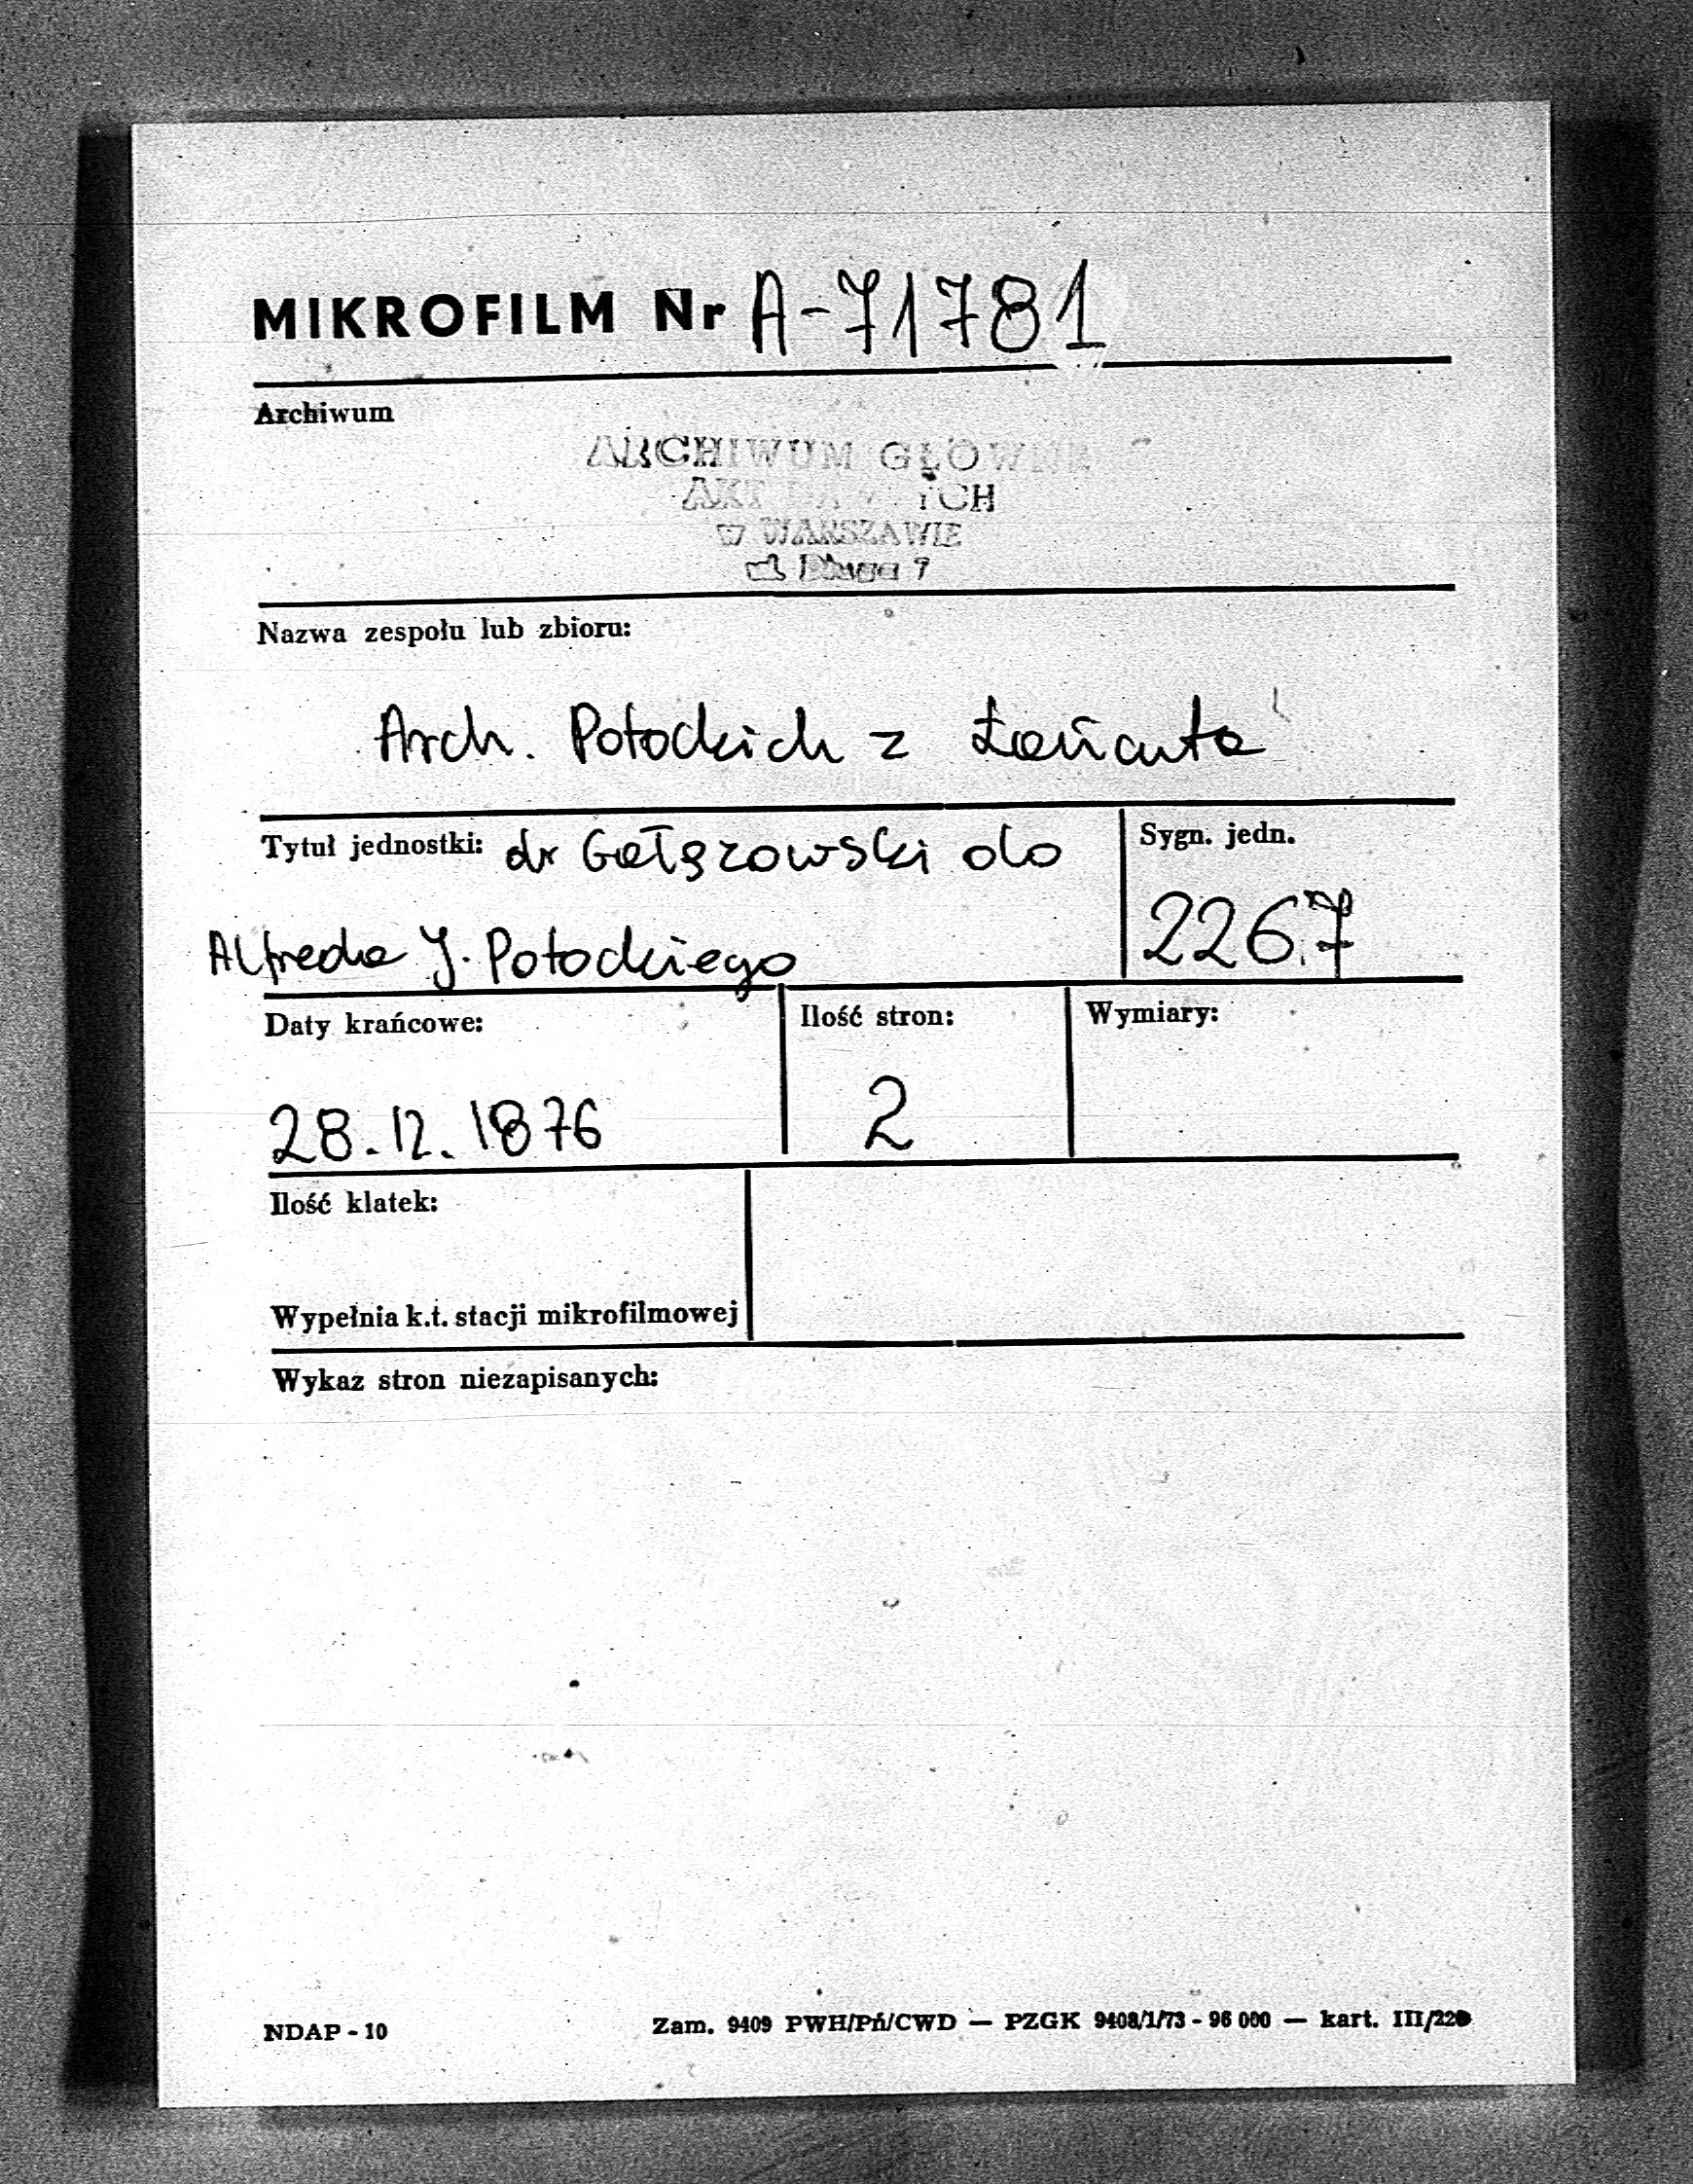 MIKROFILM Nr A-71781
Archiwum
ARCHIWUM GŁÓWNE
AKT DAWNYCH
W WARSZAWIE
ul. Długa 7
Nazwa zespołu lub zbioru:
Arch. Potockich z Łańcuta
Tytuł jednostki: dr Gałęzowski do
Alfreda J. Potockiego
Sygn. jedn.
2267
Daty krańcowe:
28.12.1876
Ilość stron:
2
Wymiary:
Ilość klatek:
Wypełnia k.t. stacji mikrofilmowej
Wykaz stron niezapisanych:
NDAP - 10
Zam. 9409 PWH/Pń/CWD — PZGK 9408/1/73 - 96 000 — kart. III/220